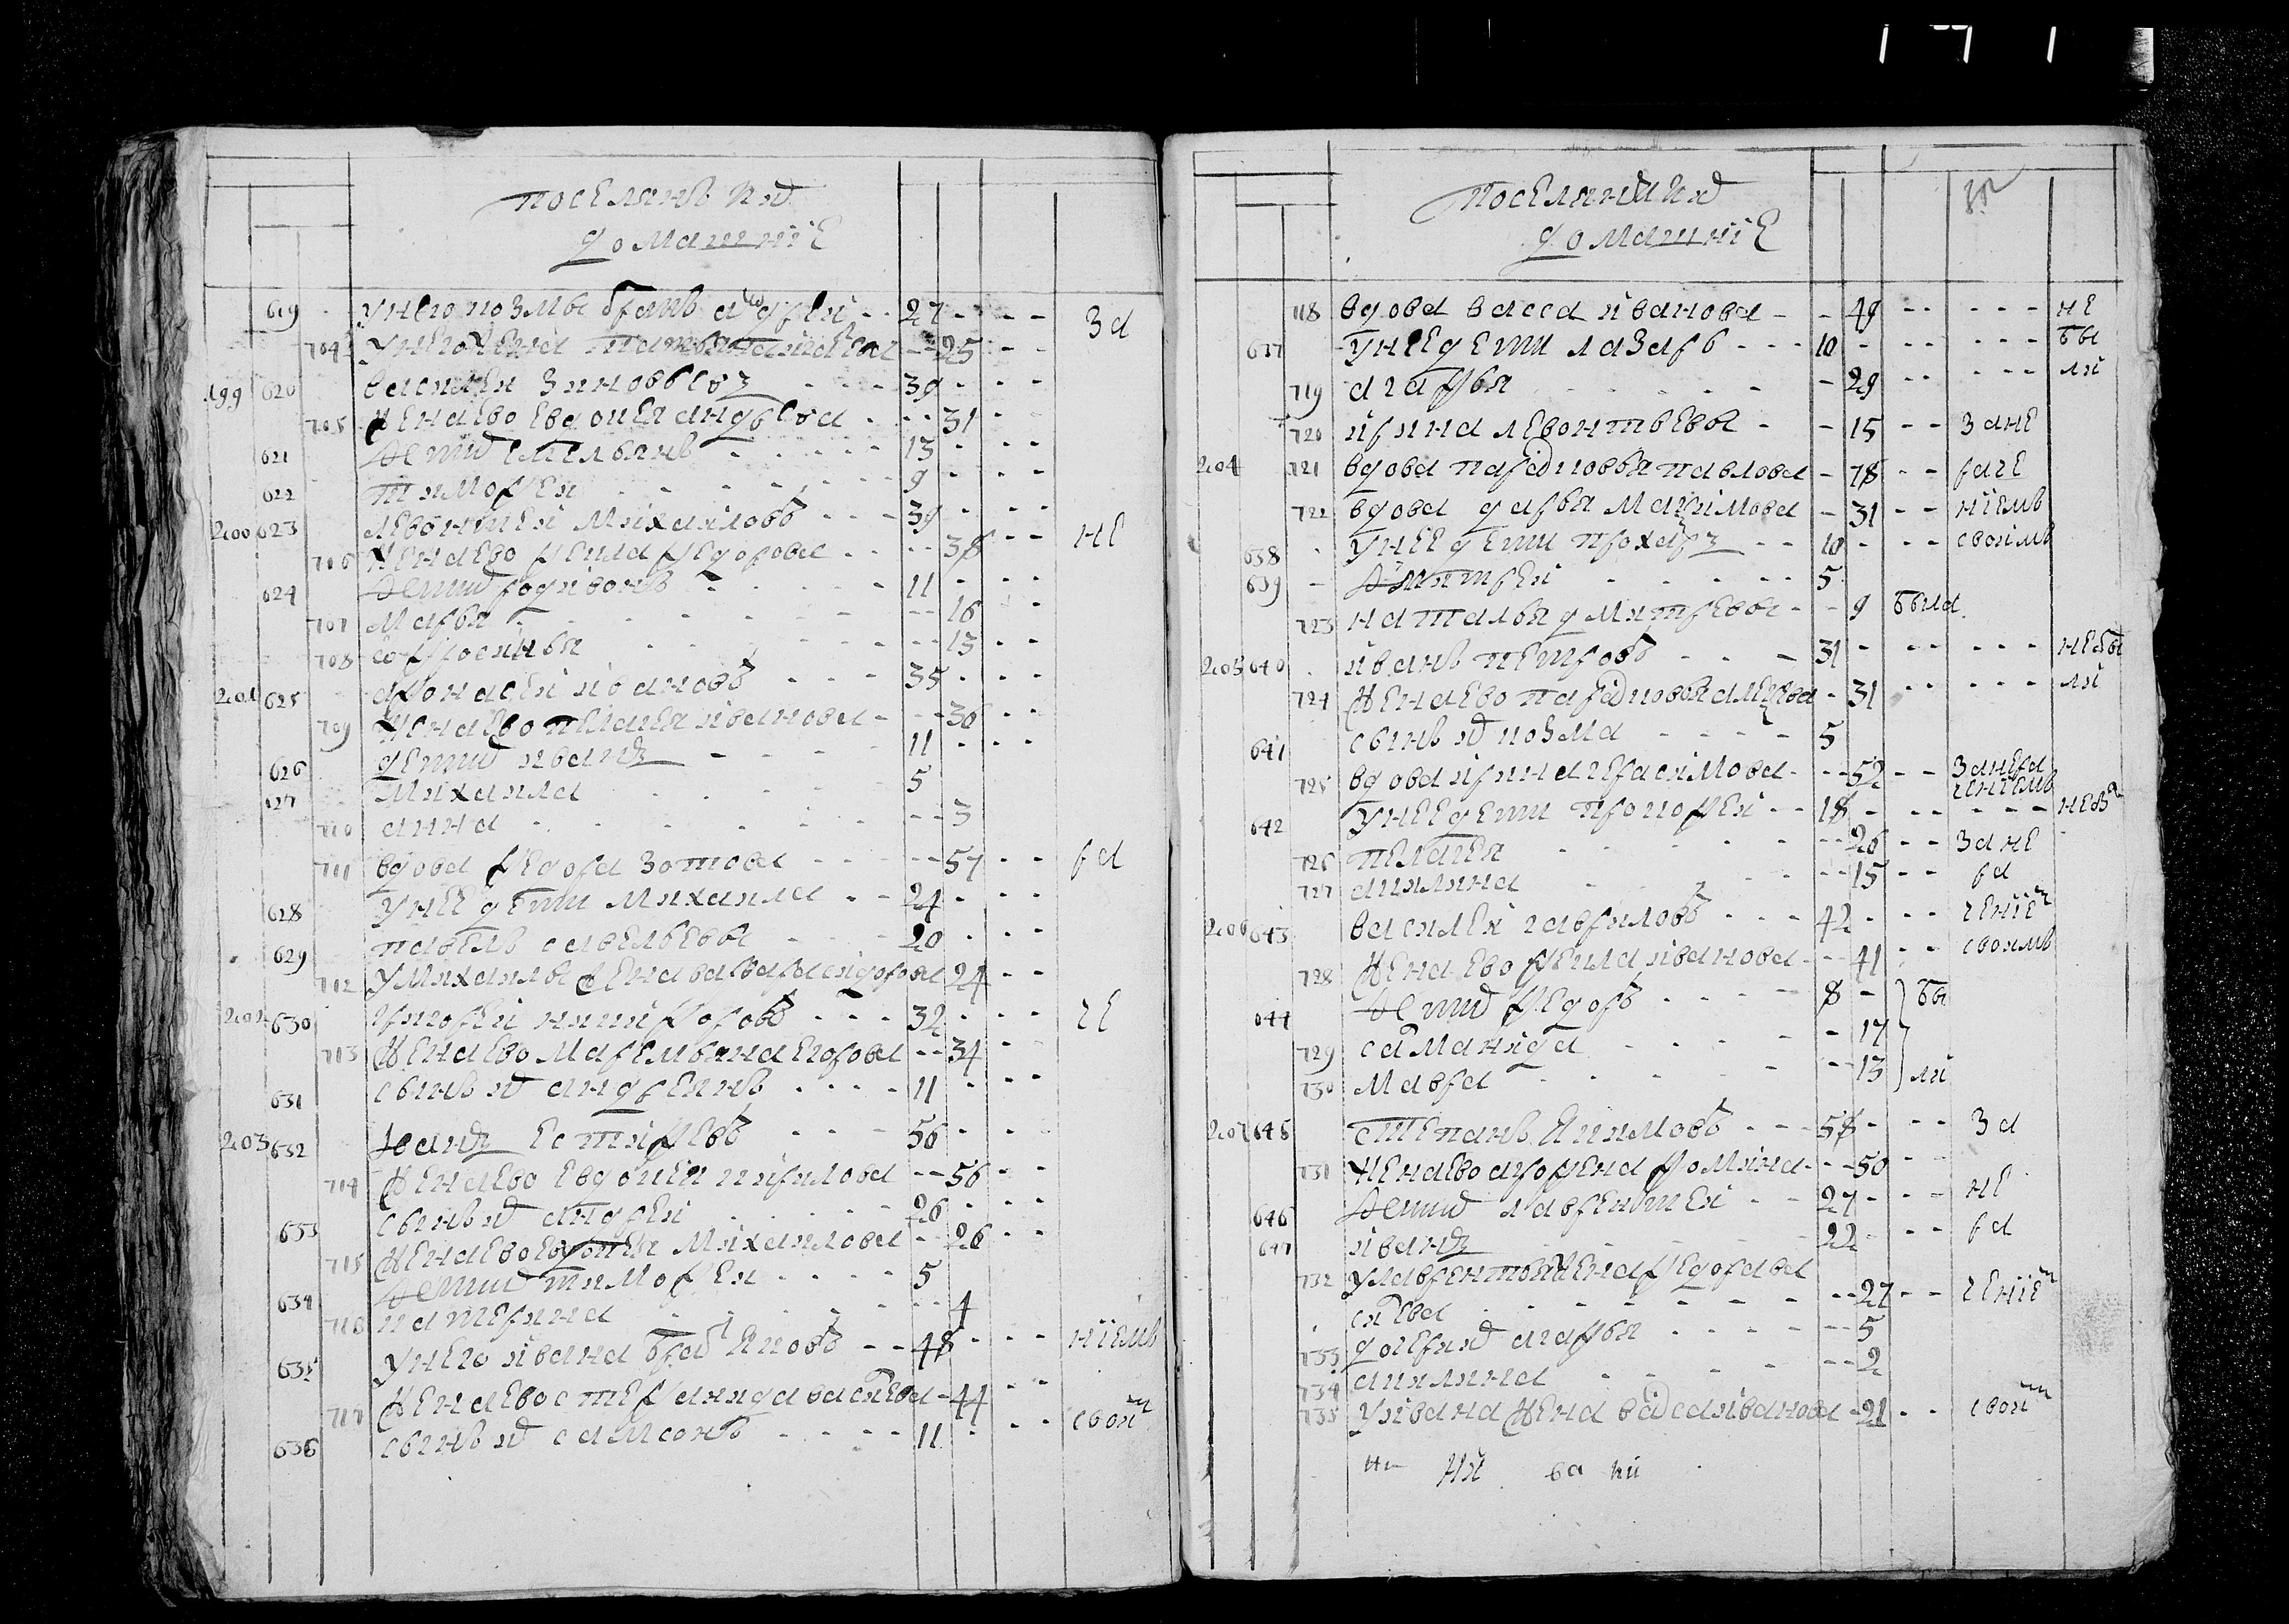 поселянѣ ихъ
домашніе
619 У него козмы братъ андрей - - 27 - - - За
704 У него жена татьяна - - 25 - -
199 620 василеи зиновьевъ - - - 39 - - -
705 жена ево евдокея андреева - - - 31 -
621 дети емельянъ - - - - - 13 - - -
622 тимофеи - - - - - 9 - - -
200 623 левонтеи михаиловъ - - - 39 - - -
706 жена ево фекла федорова - - - - 38 - - не
624 дети родивонъ - - - - - 11 - - -
707 марья - - - - - - - 16 -
708 софросинья - - - - - 13 - -
201 625 афонасеи ивановъ - - - 35 - - -
709 жена ево пелагея иванова - - - 36 - -
626 дети иванъ - - - - 11 - - -
627 михаила - - - - 5
710 анна - - - - - - - - 3
711 вдова федора зотова - - - - - 57 - - ра
628 У нее дети михаила - - 24 - - -
629 павелъ савельевы - - - 20 - - -
712 У михаилы жена варвара сидорова 24 - -
202 630 григореи никифоровъ - - - 32 - - - ге
713 жена ево маремьяна егорова - - 34 - -
631 сынъ ихъ андреянъ - - - - 11 - - -
203 632 иванъ естифеевъ - - - 56 - - -
714 жена ево евдокея кирилова - - 56 - -
633 сынъ ихъ андреи - - - - 26 - - -
715 жена ево евдокея михаилова - - 26 - -
634 дети тимофеи - - - - 5
716 катерина - - - - - - - 4
635 У него ивана братъ яковъ - - 48 - - - ніемъ
717 жена ево стефанида васильева - 44 - -
636 сынъ ихъ самсонъ - - - - 11 - - - своим
поселяни ихъ
домашніе
718 вдова васса иванова - - 49 - - - - - не
637 У нее дети лазарь - - - 10 - - - - - - бы
719 агафья - - - - - 29 - - - - - ли
720 ирина левонтьевы - - 15 - - Зане
204 721 вдова парасковья павлова - 78 - - раге
722 вдова дарья максимова - 31 - - ніемъ
638 У нее дети прохоръ - - 10 - - - своимъ
639 дмитреи - - - - - 5
723 наталья дмитревы - - 9 была
205 640 иванъ петровъ - - - 31 - - - - - - небы
724 жена ево парасковья алексеева - 31 - - - - - ли
641 сынъ ихъ козма - - - - 5
725 вдова ирина герасимова - - - 52 - - Занера
генгемъ
642 У нее дети прокофеи - - 18 - - - - - -
726 пелагея - - - - - - 26 - - Зане
727 акилина - - - - - 15 - - ра
206 643 василеи гавриловъ - - - 42 - - - геніем
728 жена ево фекла иванова - - - 41 - - своимъ
644 дети федоръ - - - - 8 - бы
729 саманида - - - - - - 17
730 мавра - - - - - - 13 ли
207 645 степанъ якимовъ - - - 58 - - - За
731 жена ево афофена фомина - - - 50 - -
646 дети лаврентеи - - 27 - - - не
647 иванъ - - - - 22 - - - ра
732 У лаврентья жена федора ва
сильева - - - - - - - - 27 - - геніем
733 дочери ихъ агафья - - - - - - 5
734 акилина - - - - - 2
735 У ивана жена васса иванова - 21 - - своим